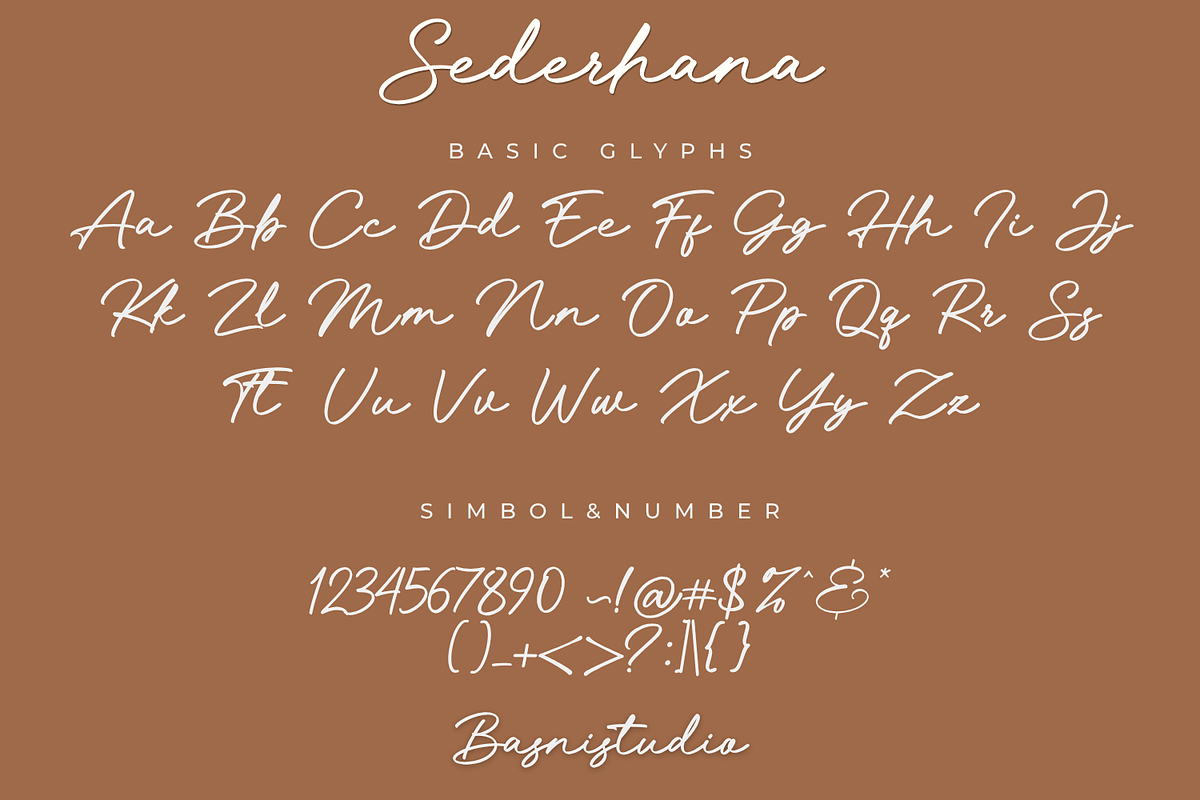 Sederhana
BASIC GLYPHS
Aa Bb Cc Dd Ee Ff Gg Hh Ii Jj
Kk Ll Mm Nn Oo Pp Qq Rr Ss
Tt Uu Vv Ww Xx Yy Zz
SIMBOL&NUMBER
1234567890 ~!@#$%^&*
()_+<>?:]|\{}
Basnistudio